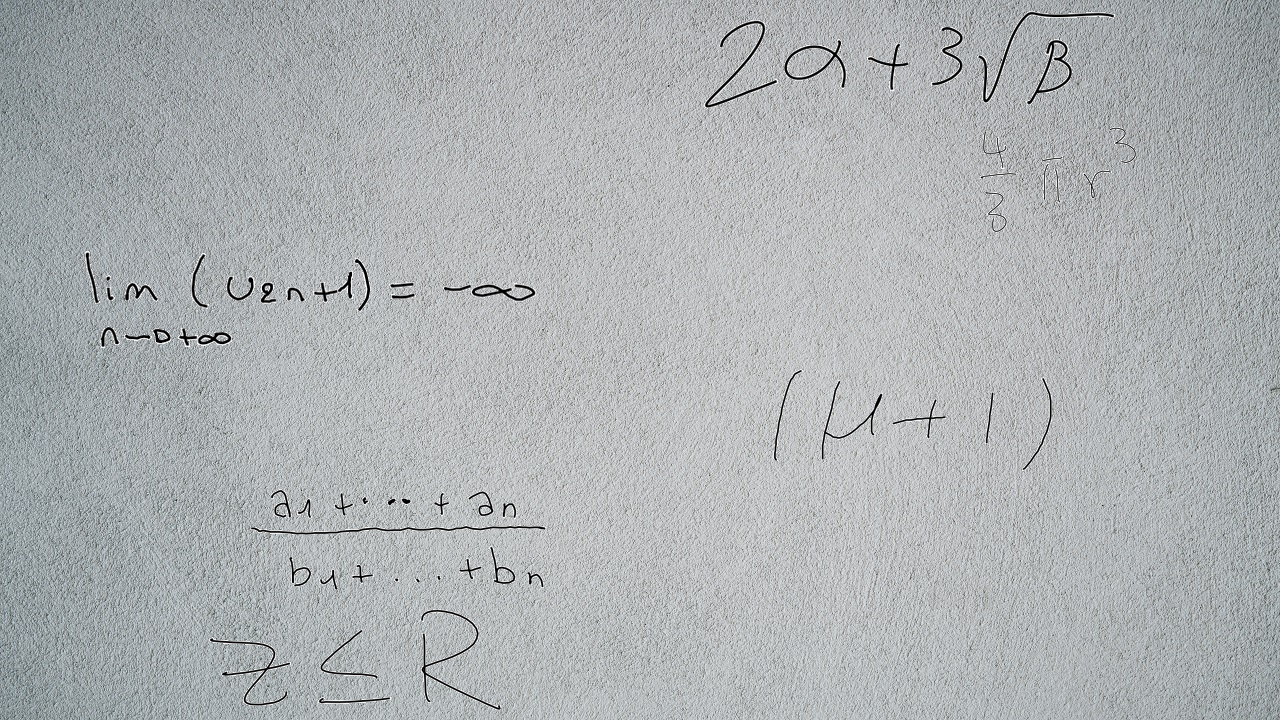 2α + 3√β
4/3 π r³
lim (u₂ₙ₊₁) = -∞
n→+∞
(μ + 1)
a₁ + ... + aₙ
b₁ + ... + bₙ
z ≤ R